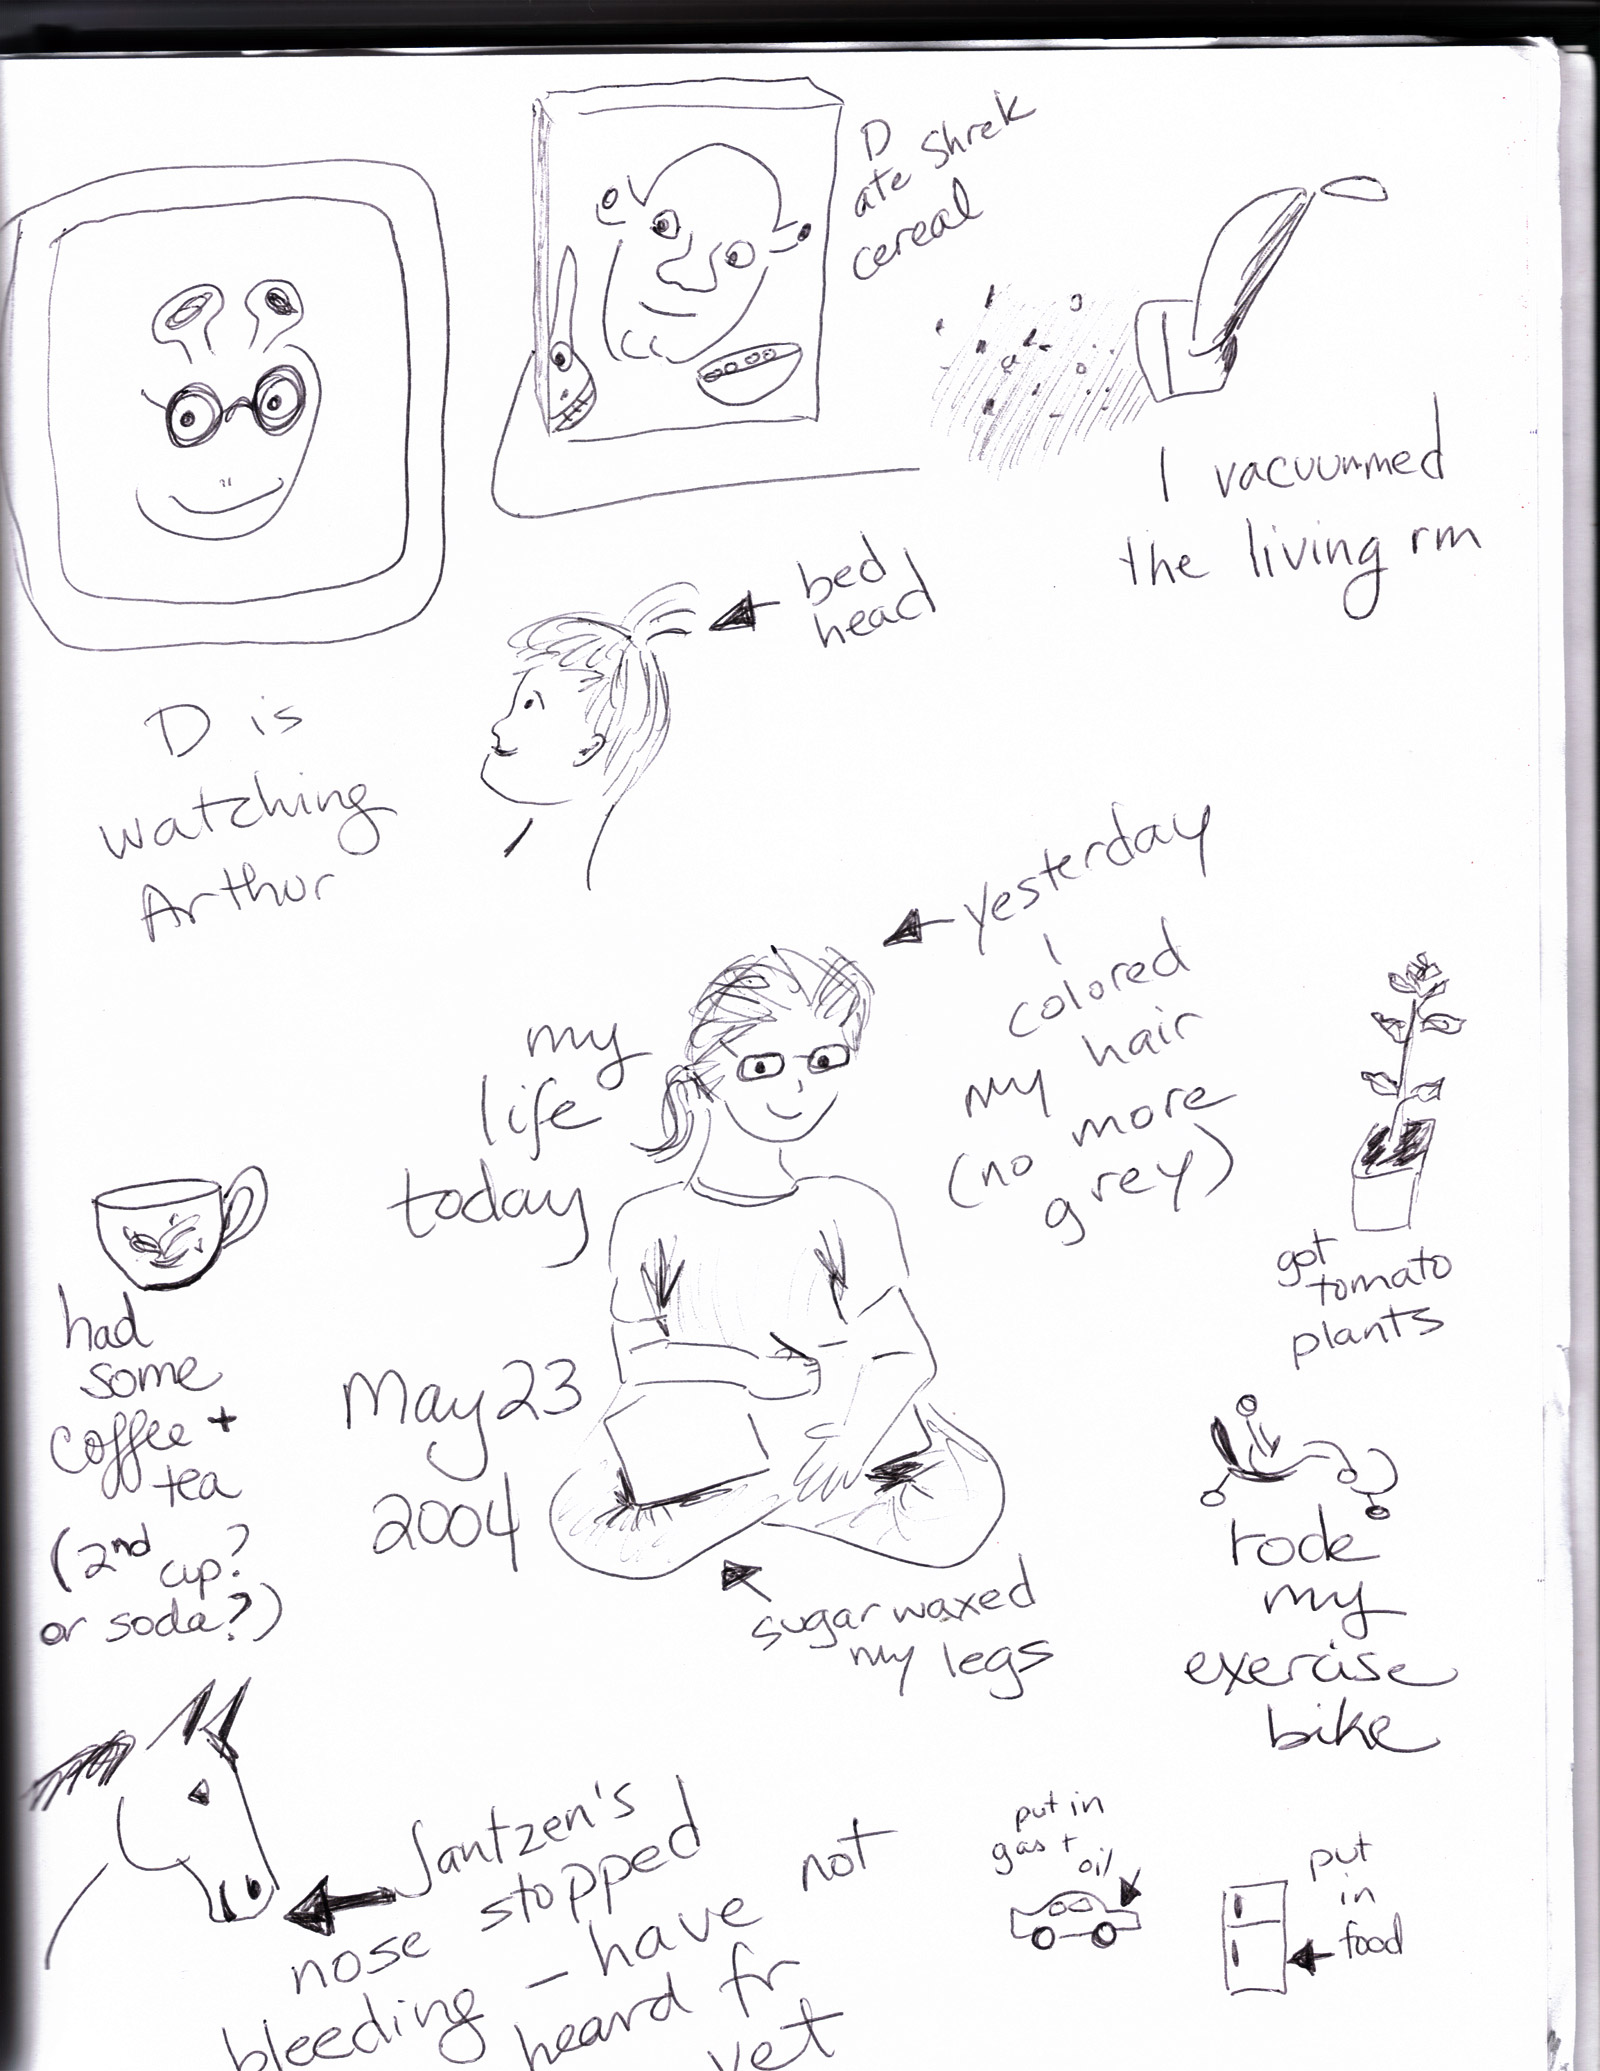 D
ate Shrek
cereal
I vacuummed
the living rm
bed
head
D is
watching
Arthur
yesterday
I
colored
my hair
(no more
grey)
my
life
today
May 23
2004
got
tomato
plants
had
some
coffee +
tea
(2nd cup?
or soda?)
sugar waxed
my legs
rode
my
exercise
bike
Jantzen's
nose stopped
bleeding – have not
heard fr
vet
put in
gas +
oil
put
in
food